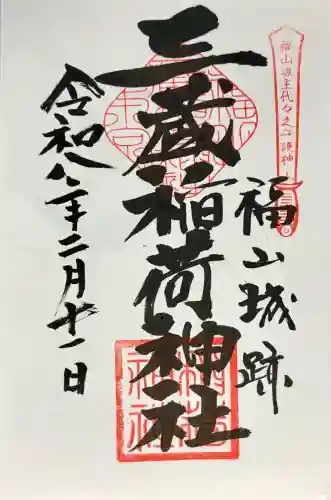 福山城主代々之守護神
福山城跡
三蔵稲荷神社
令和八年二月十一日